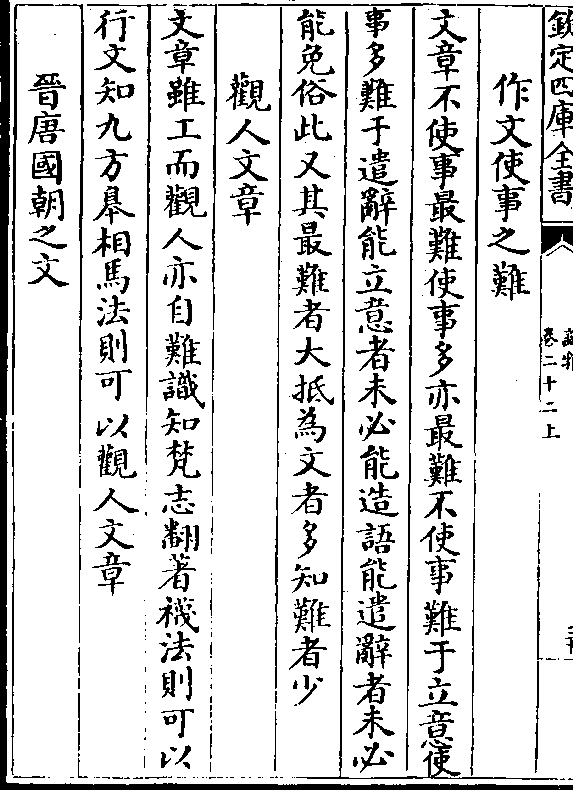 欽定四庫全書
卷二十二上
作文使事之難
文章不使事最難使事多亦最難不使事難于立意使
事多難于遣辭能立意者未必能造語能遣辭者未必
能免俗此又其最難者大抵為文者多知難者少
觀人文章
文章雖工而觀人亦自難識知梵志翻著襪法則可以
行文知九方皋相馬法則可以觀人文章
晉唐國朝之文